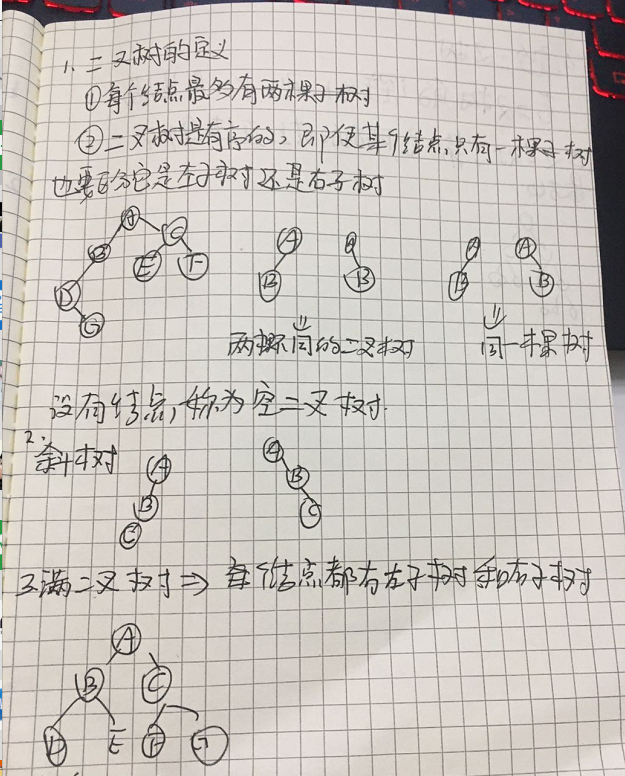 1、二叉树的定义
①每个结点最多有两棵子树
②二叉树是有序的，即使某个结点只有一棵子树
也要区分它是左子树还是右子树
A
B C
D E F
G
A A A A
B B B B
两棵不同的二叉树 同一棵树
没有结点，称为空二叉树.
2.
斜树
A A
B B
C C
3.满二叉树⇒每个结点都有左子树和右子树
A
B C
D E F G